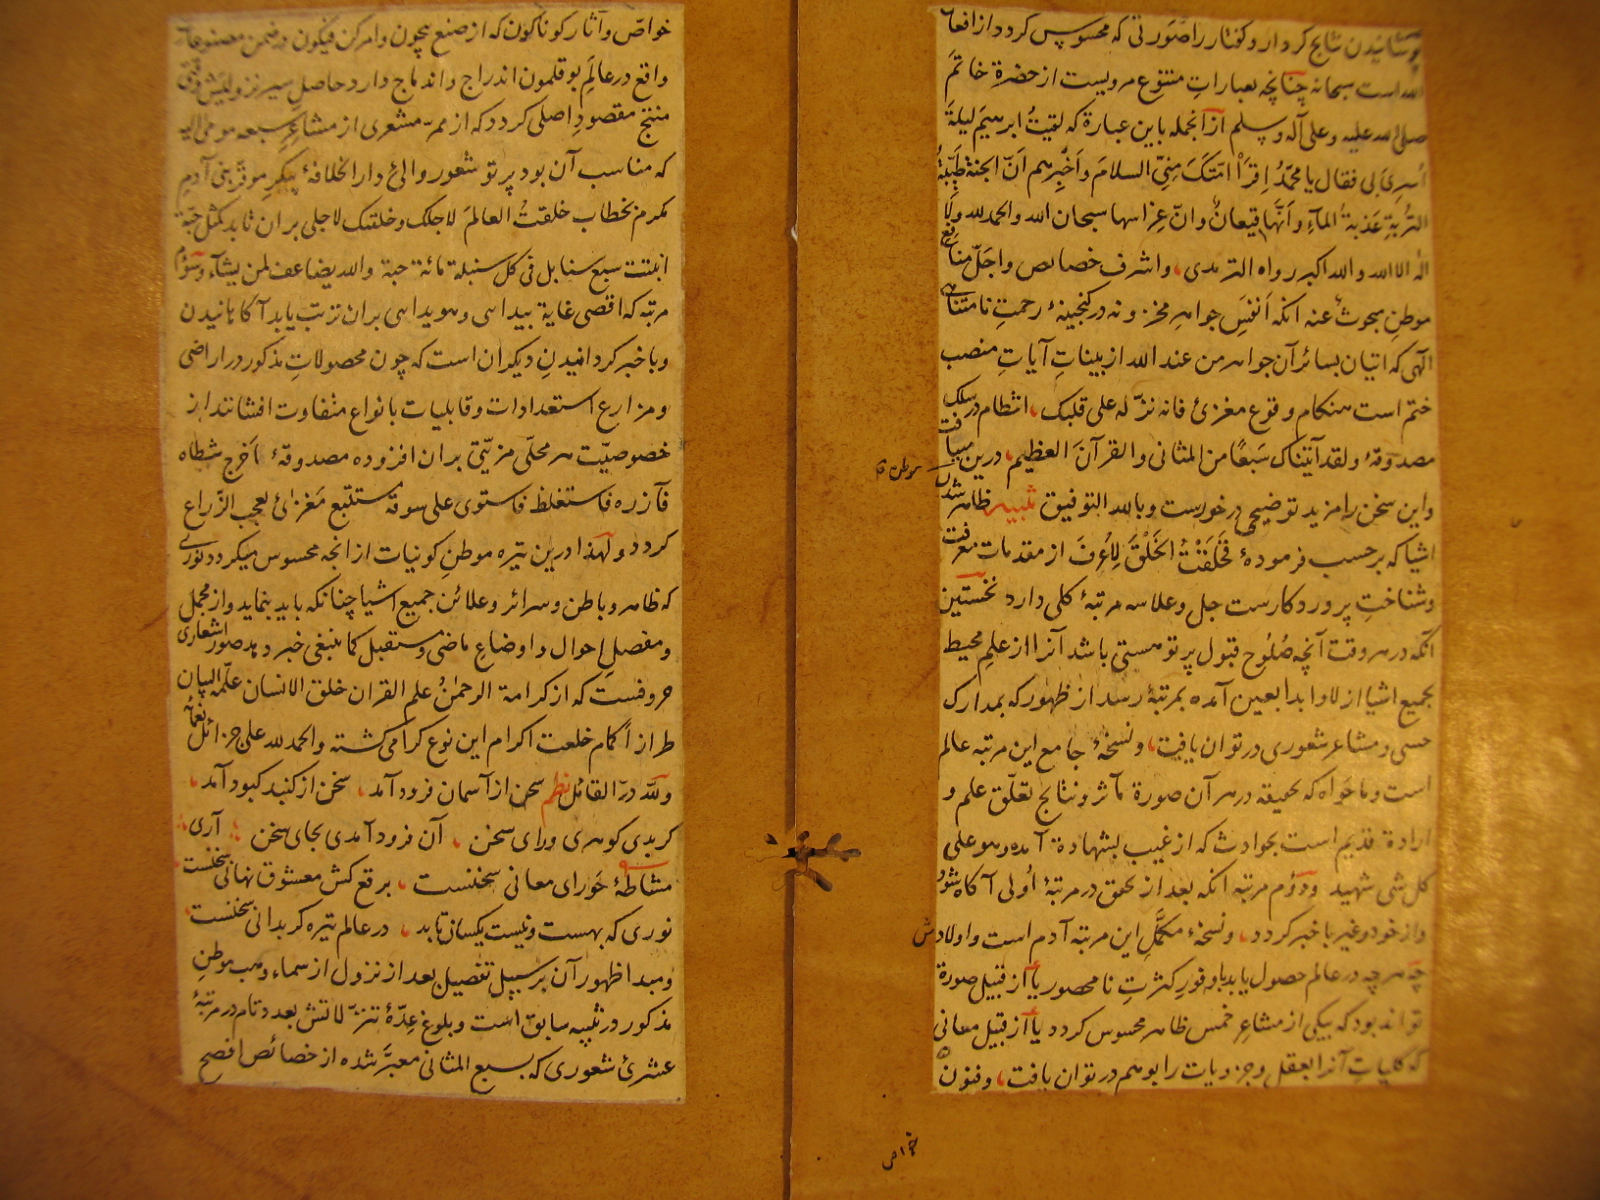 پوشانیدن نتایج کردار و گفتار را صورتی که محسوس کردد از افعال
الله است سبحانه چنانچه بعبارات متنوع مرویست از حضرة خاتم
صلی الله علیه وعلی آله وسلم از آنجمله باین عبارة که لقیت ابرهیم لیلة
اسری بی فقال یا محمد اقرأ امتک منی السلام واخبرهم ان الجنة طیبة
التربة عذبة المآء وانها قیعان وان غراسها سبحان الله والحمد لله ولا
اله الا الله والله اکبر رواه الترمدی، واشرف خصائص واجل منافع
موطن مبحوث عنه انکه انفس جواهر مخزونه در کنجینهٔ رحمت نامتناهی
الهی که اتیان بسائر آن جواهر من عند الله از بینات آیات منصب
ختم است هنکام وقوع مغزیٔ فانه نزله علی قلبک، انتظام در سلک
مصدوقهٔ ولقد آتیناک سبعا من المثانی والقرآن العظیم، درین مییافت
واین سخن را مزید توضیحی درخورست وبالله التوفیق تنبیه ظاهر شدن
موطن
اشیا که بر حسب فرمودهٔ فخلقت الخلق لاعرف از مقدمات معرفت
وشناخت پروردکارست جل وعلا سه مرتبهٔ کلی دارد نخستین
آنکه در هر وقت آنچه صلوح قبول پرتو هستی باشد آنرا از علم محیط
بجمیع اشیا ازلا وابدا بعین آمده بمرتبهٔ رسد از ظهور که بمدارک
حسی ومشاعر شعوری در توان یافت، ونسخهٔ جامع این مرتبه عالم
است وماحواه که بحقیقه در هر آن صورة مآثر ونتایج تعلق علم و
ارادة قدیم است بحوادث که از غیب بشهادة آمده وهو علی
کل شی شهید ودوم مرتبه انکه بعد از تحقق در مرتبهٔ اولی آکاه شود
واز خود وغیر باخبر کردد، ونسخهٔ مکمل این مرتبه آدم است واولادش
چه هرچه در عالم حصول یابد باوفور کثرت نامحصور یا از قبیل صورة
تواند بود که بیکی از مشاعر خمس ظاهر محسوس کردد یا از قبیل معانی
که کلیات آنرا بعقل وجزویات را بوهم در توان یافت، وفنون
خواص
خواص وآثار کوناکون که از صنع بیچون وامر کن فیکون در ضمن مصنوعات
واقع در عالم بوقلمون اندراج واندماج دارد حاصل سیر نزولیش وقتی
منتج مقصود اصلی کردد که از ممر مشعری از مشاعر سبعه مومی الیه
که مناسب آن بود پرتو شعور والیٔ دار الخلافهٔ پیکر موقر بنی آدم
مکرم بخطاب خلقت العالم لاجلک وخلقتک لاجلی بران تابد کمثل حبة
انبتت سبع سنابل فی کل سنبلة مائة حبة والله یضاعف لمن یشآء وسوم
مرتبه که اقصی غایة پیدایی وهویدایی بران ترتب یابد آکاهانیدن
وباخبر کردانیدن دیکران است که چون محصولات مذکور در اراضی
ومزارع استعدادات وقابلیات بانواع متفاوت افشانند از
خصوصیت هر محلی مزیتی بران افزوده مصدوقهٔ اخرج شطاه
فآزره فاستغلظ فاستوی علی سوقه مستتبع مغزیٔ یعجب الزراع
کردد ولهذا درین تیره موطن کونیات از انجه محسوس میکردد نوری
که ظاهر وباطن وسرائر وعلائن جمیع اشیا چنانکه باید بنماید واز مجمل
ومفصل احوال واوضاع ماضی ومستقبل کما ینبغی خبر دهد صور اشعاری
حروفست که از کرامة الرحمن علم القران خلق الانسان علمه البیان
طراز اکمام خلعت اکرام این نوع کرامی کشته والحمد لله علی جزائل نعمائه
ولله در القائل نظم سخن از آسمان فرود آمد، سخن از کنبد کبود آمد،
کر بدی کوهری ورای سخن، آن فرود آمدی بجای سخن، آری،
مشاطهٔ حورای معانی سخنست، برقع کش معشوق نهانی سخنست،
نوری که بهست ونیست یکسان تابد، در عالم تیره کر بدانی سخنست،
ومبدا ظهور آن بر سبیل تفصیل بعد از نزول از سماء وهب موطن
مذکور در تنبیه سابق است وبلوغ عدهٔ تنزلاتش بعدد تام در مرتبهٔ
عشریٔ شعوری که بسبع المثانی معبر شده از خصائص افصح